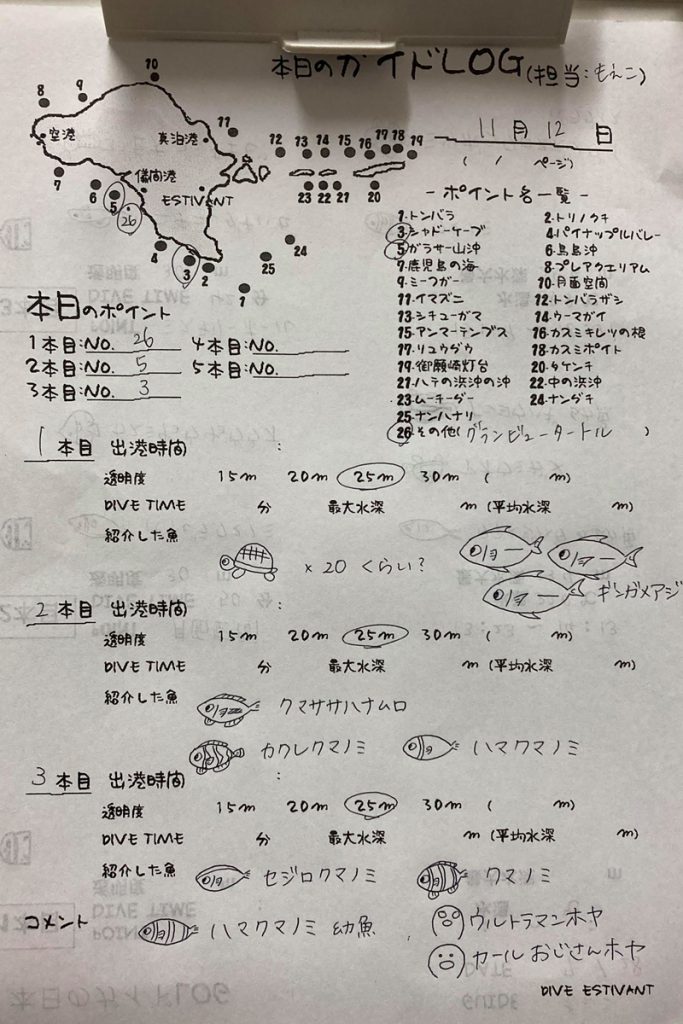 本日のガイドLOG(担当:もえこ)
11月 12 日
( / ページ)
10
8
9
空港
真泊港
11
12
13
14
15
16
17
18
19
7
6
5
儀間港
ESTIVANT
23
22
21
20
26
4
3
2
25
24
1
- ポイント名一覧 -
1.トンバラ 2.トリノクチ
3.シャドーケーブ 4.パイナップルバレー
5.ガラサー山沖 6.鳥島沖
7.鹿児島の海 8.プレアクエリアム
9.ミーフガー 10.月面空間
11.イマズニ 12.トンバラザシ
13.シチューガマ 14.ウーマガイ
15.アンマーテンプス 16.カスミキレツの根
17.リュウグウ 18.カスミポイト
19.御願崎灯台 20.タケンチ
21.ハテの浜沖の沖 22.中の浜沖
23.ムーチーダー 24.ナングチ
25.ナンハナリ
26.その他(グランビュータートル )
本日のポイント
1本目:NO. 26 4本目:NO.
2本目:NO. 5 5本目:NO.
3本目:NO. 3
1 本目 出港時間 :
透明度 15m 20m 25m 30m ( m)
DIVE TIME 分 最大水深 m (平均水深 m)
紹介した魚
×20 くらい?
ギンガメアジ
2 本目 出港時間 :
透明度 15m 20m 25m 30m ( m)
DIVE TIME 分 最大水深 m (平均水深 m)
紹介した魚 クマササハナムロ
カクレクマノミ ハマクマノミ
3 本目 出港時間 :
透明度 15m 20m 25m 30m ( m)
DIVE TIME 分 最大水深 m (平均水深 m)
紹介した魚 セジロクマノミ クマノミ
コメント ハマクマノミ 幼魚 ウルトラマンホヤ
カールおじさんホヤ
DIVE ESTIVANT